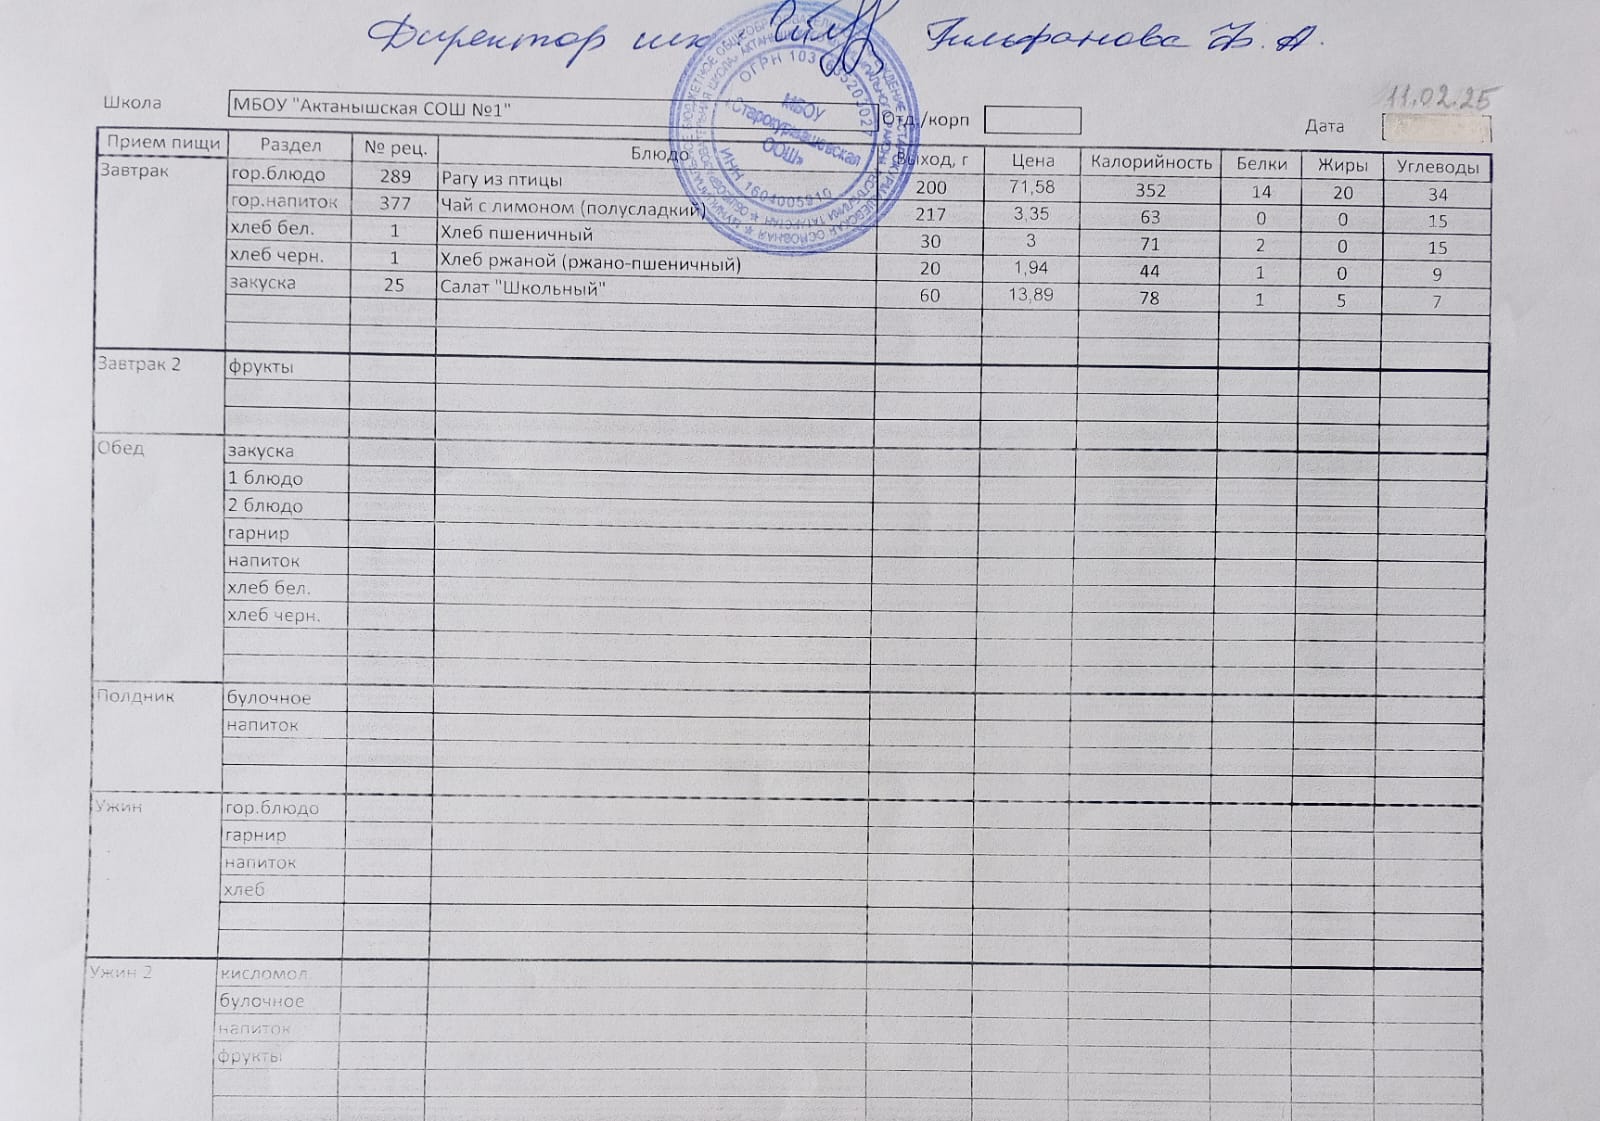 Директор шк. Гильфанова Ф. А.
11.02.25
Школа МБОУ "Актанышская СОШ №1" Отд./корп Дата
Прием пищи Раздел № рец. Блюдо Выход, г Цена Калорийность Белки Жиры Углеводы
Завтрак гор.блюдо 289 Рагу из птицы 200 71,58 352 14 20 34
гор.напиток 377 Чай с лимоном (полусладкий) 217 3,35 63 0 0 15
хлеб бел. 1 Хлеб пшеничный 30 3 71 2 0 15
хлеб черн. 1 Хлеб ржаной (ржано-пшеничный) 20 1,94 44 1 0 9
закуска 25 Салат "Школьный" 60 13,89 78 1 5 7
Завтрак 2 фрукты
Обед закуска
1 блюдо
2 блюдо
гарнир
напиток
хлеб бел.
хлеб черн.
Полдник булочное
напиток
Ужин гор.блюдо
гарнир
напиток
хлеб
Ужин 2 кисломол.
булочное
напиток
фрукты
МБОУ
«Старокурмашевская
ООШ»
ИНН 1604005910